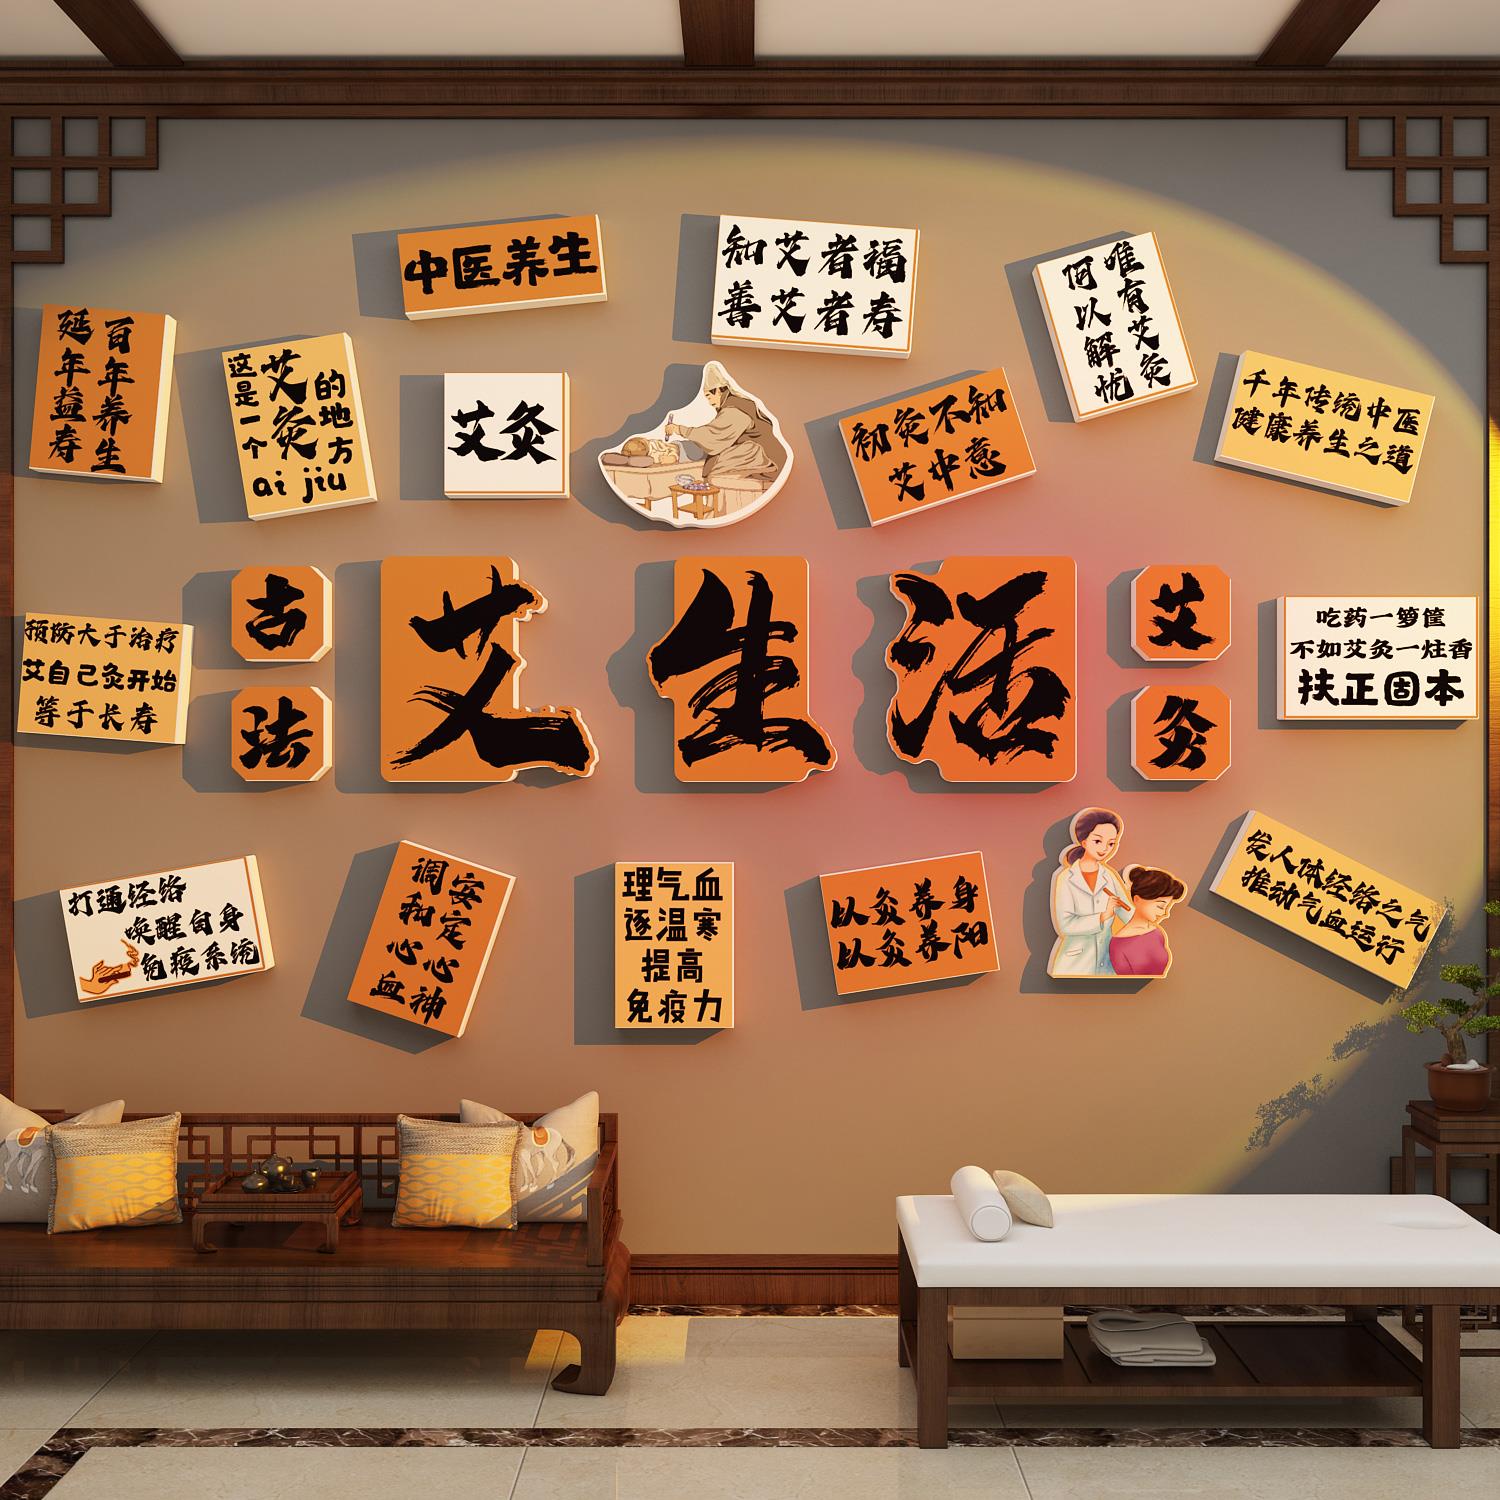 中医养生
知艾者福
善艾者寿
唯有艾灸
何以解忧
百年养生
延年益寿
这是一个
艾灸
的地方
ai jiu
艾灸
初灸不知
艾中意
千年传统中医
健康养生之道
预防大于治疗
艾自己灸开始
等于长寿
古法
艾生活
艾灸
吃药一箩筐
不如艾灸一炷香
扶正固本
打通经络
唤醒自身
免疫系统
调和心血
安定心神
理气血
逐温寒
提高
免疫力
以灸养身
以灸养阳
发人体经络之气
推动气血运行